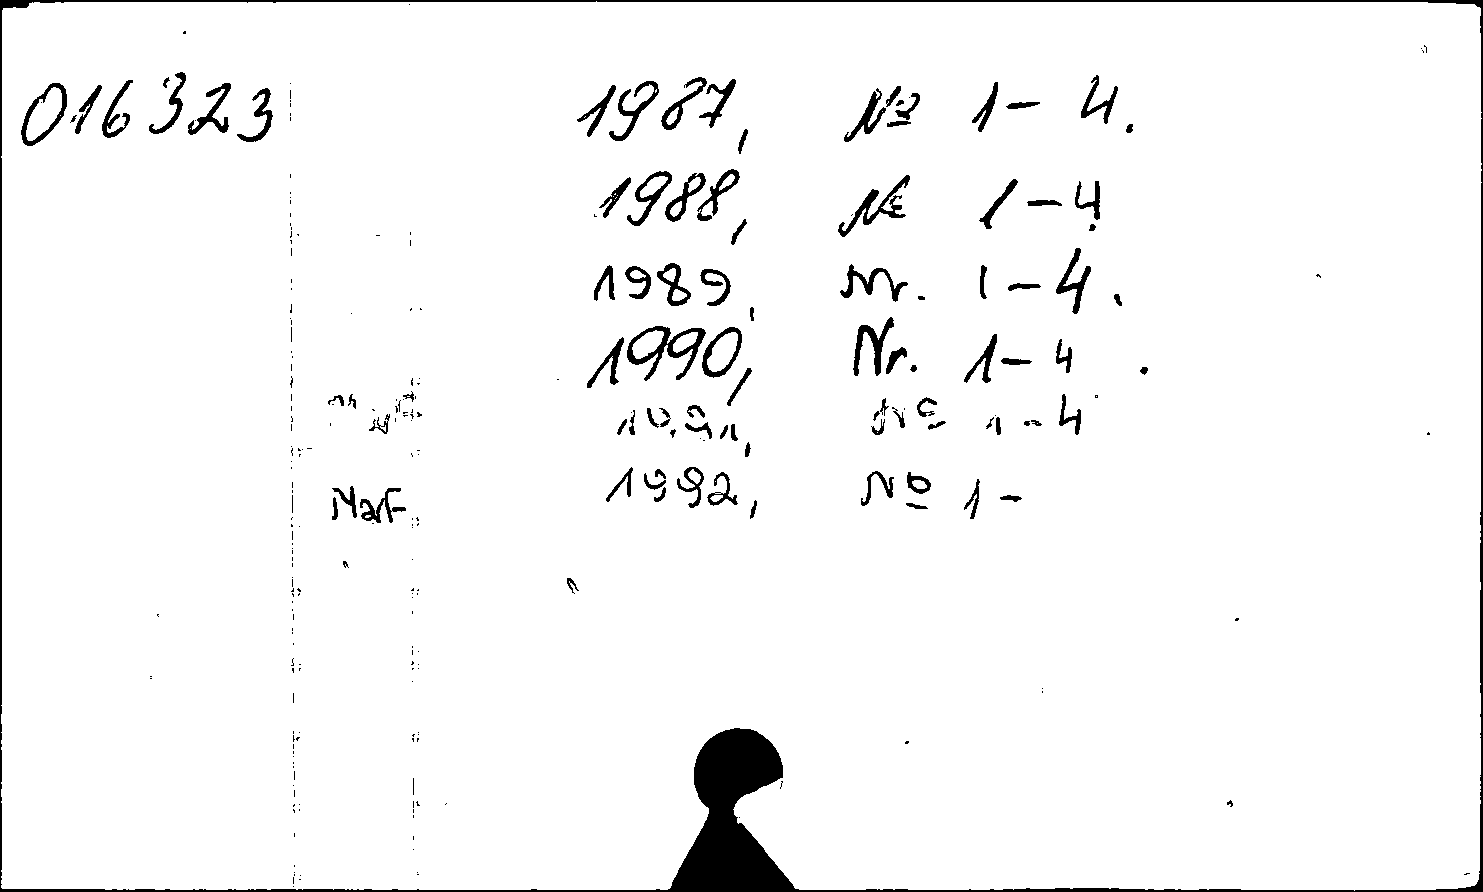 016323 1987, № 1-4.
1988, № 1-4.
1989, Nr. 1-4.
1990, Nr. 1-4.
1991, № 1-4
1992, № 1-